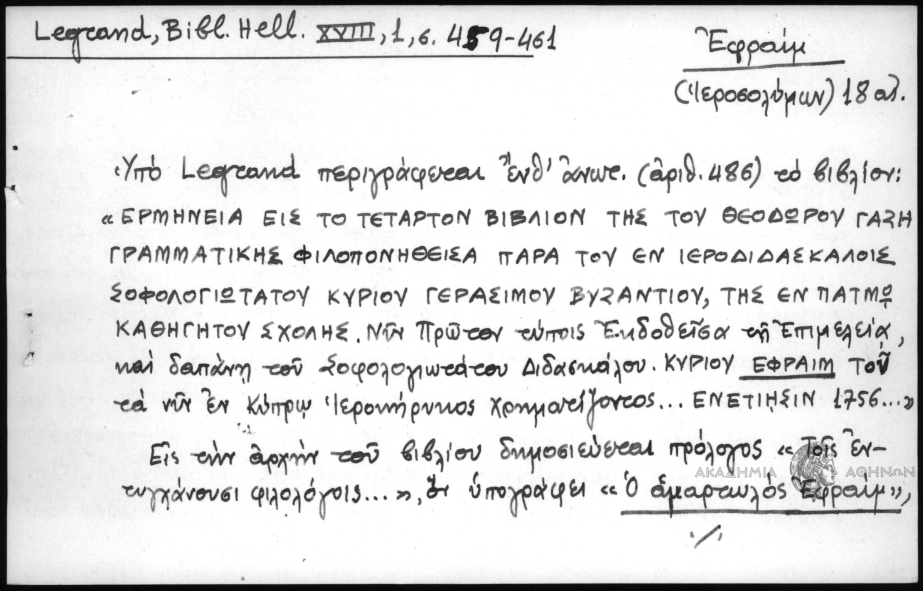 Legrand, Bibl. Hell. XVIII, 1, σ. 459-461
Ἐφραίμ
(Ἱεροσολύμων) 18 αἰ.
Ὑπὸ Legrand περιγράφεται ἔνθ' ἄνωτ. (ἀριθ. 486) τὸ βιβλίον:
«ΕΡΜΗΝΕΙΑ ΕΙΣ ΤΟ ΤΕΤΑΡΤΟΝ ΒΙΒΛΙΟΝ ΤΗΣ ΤΟΥ ΘΕΟΔΩΡΟΥ ΓΑΖΗ
ΓΡΑΜΜΑΤΙΚΗΣ ΦΙΛΟΠΟΝΗΘΕΙΣΑ ΠΑΡΑ ΤΟΥ ΕΝ ΙΕΡΟΔΙΔΑΣΚΑΛΟΙΣ
ΣΟΦΟΛΟΓΙΩΤΑΤΟΥ ΚΥΡΙΟΥ ΓΕΡΑΣΙΜΟΥ ΒΥΖΑΝΤΙΟΥ, ΤΗΣ ΕΝ ΠΑΤΜῼ
ΚΑΘΗΓΗΤΟΥ ΣΧΟΛΗΣ. Νῦν Πρῶτον τύποις Ἐκδοθεῖσα τῇ Ἐπιμελείᾳ,
καὶ δαπάνῃ τοῦ Σοφολογιωτάτου Διδασκάλου. ΚΥΡΙΟΥ ΕΦΡΑΙΜ Τοῦ
τὰ νῦν ἐν Κύπρῳ Ἱεροκήρυκος χρηματίζοντος... ΕΝΕΤΙΗΣΙΝ 1756...»
Εἰς τὴν ἀρχὴν τοῦ βιβλίου δημοσιεύεται πρόλογος «Τοῖς ἐν-
τυγχάνουσι φιλολόγοις...», ὃν ὑπογράφει «Ὁ ἁμαρτωλὸς Ἐφραίμ»,
./.
ΑΚΑΔΗΜΙΑ ΑΘΗΝΩΝ